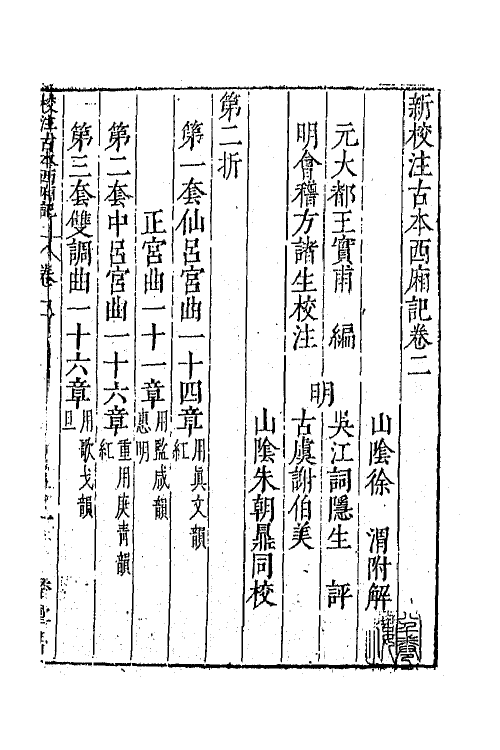 新校注古本西廂記卷二
山陰徐　渭附解
元大都王實甫　編
吳江詞隱生　評
明會稽方諸生校注
明
古虞謝伯美
山陰朱朝鼎同校
第二折
第一套仙呂宮曲一十四章用眞文韻紅
正宮曲一十一章用監咸韻惠明
第二套中呂宮曲一十六章重用庚青韻紅
第三套雙調曲一十六章用歌戈韻旦
校注古本西廂記　卷二